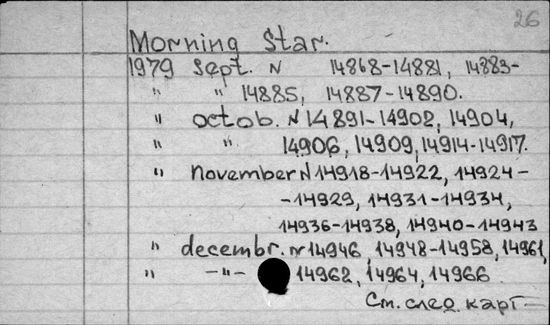 26
Morning Star.
1979 Sept. N 14868-14881, 14883-
" " 14885, 14887-14890.
" octob. N 14891-14902, 14904,
" " 14906, 14909, 14914-14917.
" november N 14918-14922, 14924-
-14929, 14931-14934,
14936-14938, 14940-14943
" decembr. N 14946, 14948-14958, 14961,
" -"- 14962, 14964, 14966
См. след. карт-